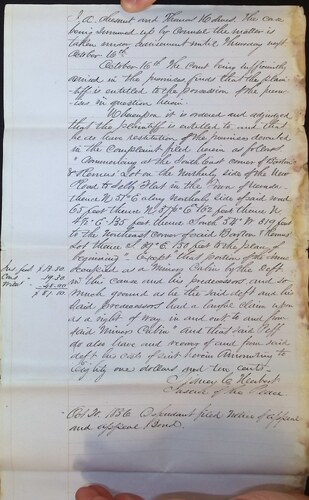 J. A. Chesnut and Thomas
The case
being summed up by Counsel the matter is
taken under advisement until Thursday next
October 16th.
October 16th The Court being sufficiently
advised in the premises finds that the plain-
tiff is entitled to the possession of the prem-
ises in question herein.
Whereupon it is ordered and adjudged
that the plaintiff is entitled to and that
he do have restitution of the premises described
in the Complaint filed herein as follows
"Commencing at the South East corner of Barton
& Lot on the Northerly side of the New
Road to Selby Flat in the Town of Nevada
thence N 51° E along Northerly side of said road
65 feet thence N 37½° E 162 feet thence N
E 135 feet thence South 54° W 319 feet
to the Northeast Corner of said Barton &
Lot thence S 39° E 150 feet to the place of
beginning" Except that portion of the same
occupied as a Miners Cabin by the Deft.
in this cause and his predecessors and so
much ground as he the said deft and his
said predecessors had a lawful claim upon
as a right of way in and out to and from
said "Miners Cabin" And that said Plff
do also have and recover of and from said
deft his costs of suit herein Amounting to
Eighty one dollars and ten cents.
Sidney C
Justice of the Peace
Defendant filed notice of appeal
and appeal Bond.
$81.10